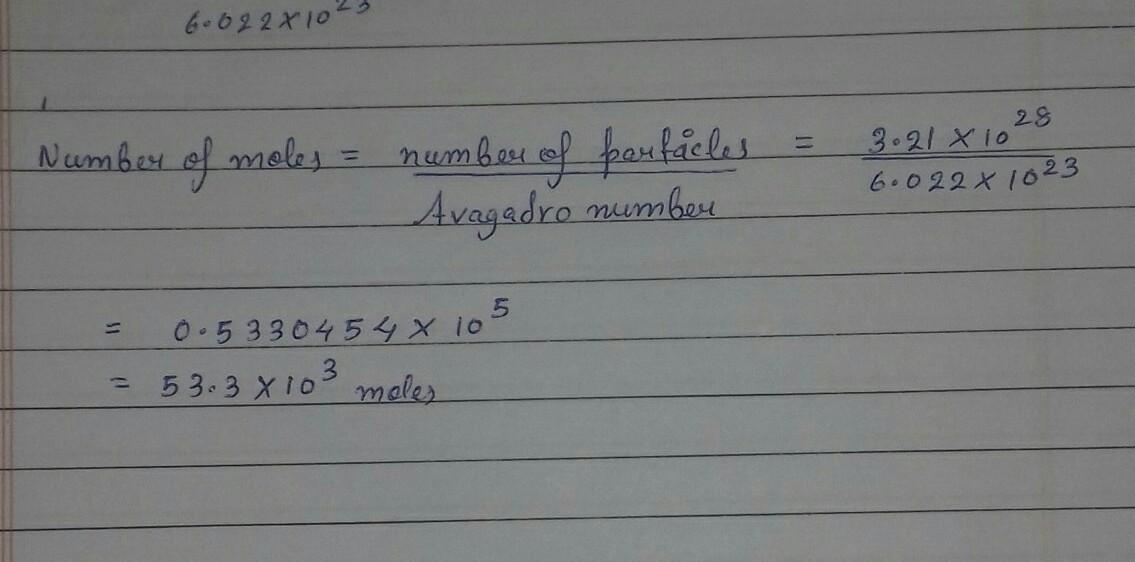 6.022×10²³
Number of moles = number of particles / Avagadro number = 3.21 × 10²⁸ / 6.022 × 10²³
= 0.5330454 × 10⁵
= 53.3 × 10³ moles